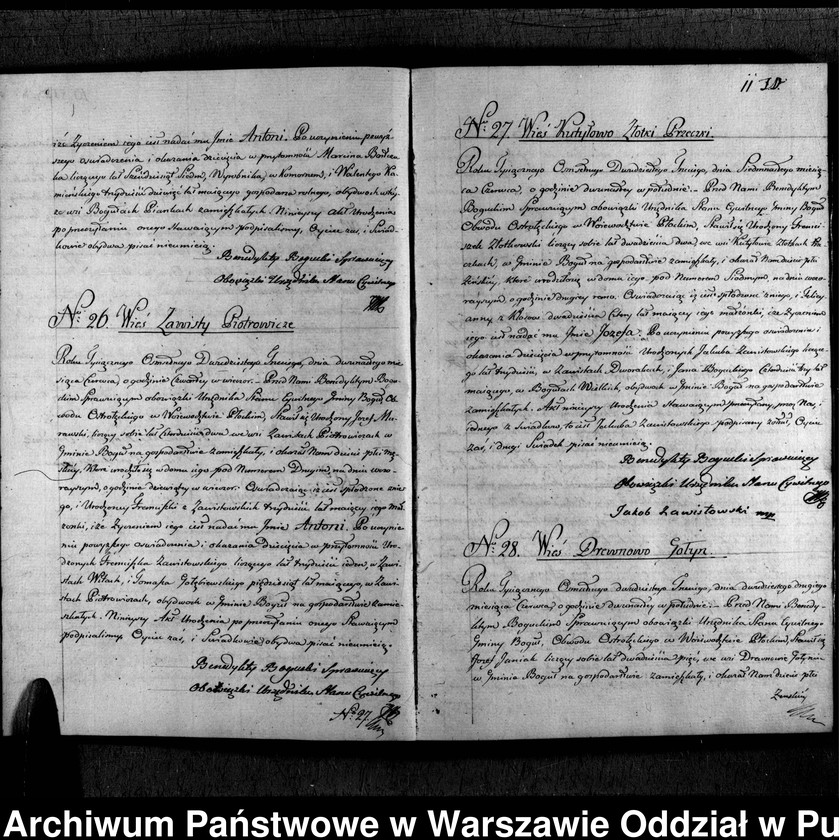 iż Życzeniem jego jest nadać mu Jmie Antoni. Po uczynieniu powyż
szego oświadczenia i okazania dziecięcia w przytomności Marcina
liczącego lat Sześdziesiąt Siedm, Wyrobnika, w komorném, i Walentego Ka
mieńskiego trzydzieści dziewięć lat maiącego gospodarza rolnego, obydwóch
ze wsi Bogutach Piankach zamieszkałych. Ninieyszy Akt Urodzenia
po przeczytaniu onego Stawaiącym podpisaliśmy, Oyciec zaś, i Świad
kowie obydwa pisać nieumieią.
Benedykty Bogucki Sprawuiący
Obowiązki Urzędnika Stanu Cywilnego
No. 26. Wieś Zawisty Piotrowicze
Roku Tysiącznego Osmsetnego Dwudziestego Trzeciego, dnia dwunastego mie
siąca Czerwca, o godzinie czwartey w wieczor. Przed Nami Benedyktym Bogu
ckim Sprawuiącym obowiązki Urzędnika Stanu Cywilnego Gminy Boguł Ob
wodu Ostrołęckiego w Woiewodztwie Płockim, Stawił się Urodzony Jozef Mu
rawski, liczący sobie lat czterdzieści dwa we wsi Zawistach Piotrowiczach w
Gminie Boguł na gospodarstwie zamieszkały, i okazał Nam dziecie płci Mę
skiey, które urodziło się w domu iego pod Numerem Drugim, na dniu wczo
rayszym, o godzinie dziewiątey w wieczor. Oświadczaiąc iż iest spłodzone z nie
go, i Urodzoney Franciszki z Zawistowskich trzydzieści lat maiącey iego Mał
żonki, i że Życzeniem iego iest nadać mu Jmie Antoni. Po uczynie
niu powyższego oświadczenia i okazania dziecięcia w przytomności Uro
dzonych Franciszka Zawistowskiego liczącego lat trzydzieści ieden, w Zawi
stach i Tomasza Gołębiewskiego piędziesiąt lat maiącego, w Zawi
stach Piotrowiczach, obydwóch w Gminie Boguł na gospodarstwie zamie
szkałych. Ninieyszy Akt Urodzenia po przeczytaniu onego Stawaiącym
podpisaliśmy Oyciec zaś, i Świadkowie obydwa pisać nieumieią.
Benedykty Bogucki Sprawuiący
Obowiązki Urzędnika Stanu Cywilnego
No. 27
No. 27. Wieś Kutyłowo Złotki Przeczki.
Roku Tysiącznego Osmsetnego Dwudziestego Trzeciego, dnia Siedmnastego miesią
ca Czerwca, o godzinie dwunastey w południe. Przed Nami Benedyktym
Boguckim Sprawuiącym obowiązki Urzędnika Stanu Cywilnego Gminy Boguł
Obwodu Ostrołęckiego w Woiewodztwie Płockim, Stawił się Urodzony Franci
szek Złotkowski liczący sobie lat dwadzieścia dwa, we wsi Kutyłowie Złotkach Prze
czkach, w Gminie Boguł na gospodarstwie zamieszkały, i okazał Nam dziecie płci
Żeńskiey, które urodziło się w domu iego pod Numerem Siodmym, na dniu wczo
rayszym, o godzinie drugiey rano. Oświadczaiąc iż iest spłodzone z niego, i Felicy
anny z Kłosow dwadzieścia cztery lat maiącey iego małżonki, i że życzeniem
iego iest nadać mu Jmie Jozefa. Po uczynieniu powyższego oświadczenia i
okazania dziecięcia w przytomności Urodzonych Jakuba Zawistowskiego liczące
go lat trzydzieści, w Zawistach Dworakach, i Jana Boguckiego Czterdzieści trzy lat
maiącego, w Bogutach Wielkich, obydwóch w Gminie Boguł na gospodarstwie
zamieszkałych. Akt ninieyszy Urodzenia Stawaiącym przeczytany, przez Nas, i
iednego z Świadków, to iest Jakuba Zawistowskiego podpisany został, Oyciec
zaś, i drugi Świadek pisać nieumieią.
Benedykty Bogucki Sprawuiący
Obowiązki Urzędnika Stanu Cywilnego
Jakob Zawistowski mp
No. 28. Wieś Drewnowo Gołyn
Roku Tysiącznego Osmsetnego dwudziestego Trzeciego, dnia dwudziestego drugiego
miesiąca Czerwca, o godzinie dwunastey w południe. Przed Nami Benedy
ktym Boguckim Sprawuiącym obowiązki Urzędnika Stanu Cywilnego
Gminy Boguł, Obwodu Ostrołęckiego w Woiewodztwie Płockim, Stawił się
Jozef Janiak liczący sobie lat dwadzieścia pięć, we wsi Drewnowie Gołynie
w Gminie Boguł na gospodarstwie zamieszkały, i okazał Nam dziecie płci
Żeńskiey
Archiwum Państwowe w Warszawie Oddział w Pu